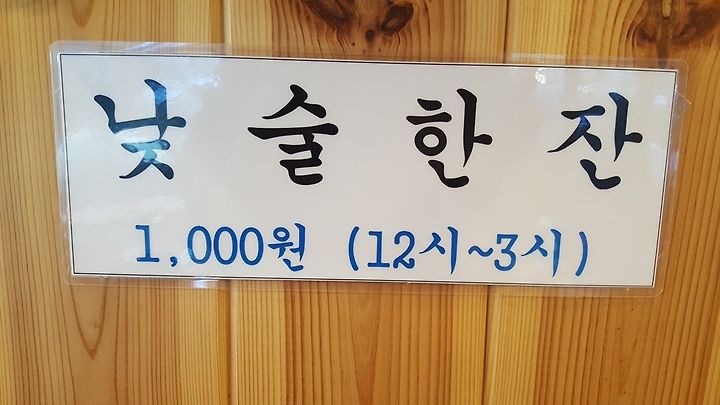 낮술한잔
1,000원 (12시~3시)